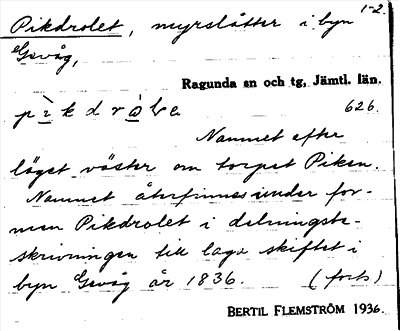 Pikdrolet, myrslåtter i byn 1-2.
Gevåg,
Ragunda sn och tg, Jämtl. län.
626.
Namnet efter
läget väster om torpet Piken.
Namnet återfinnes under for-
men Pikdrolet i delningsbe-
skrivningen till laga skiftet i
byn Gevåg år 1836. (forts)
BERTIL FLEMSTRÖM 1936.